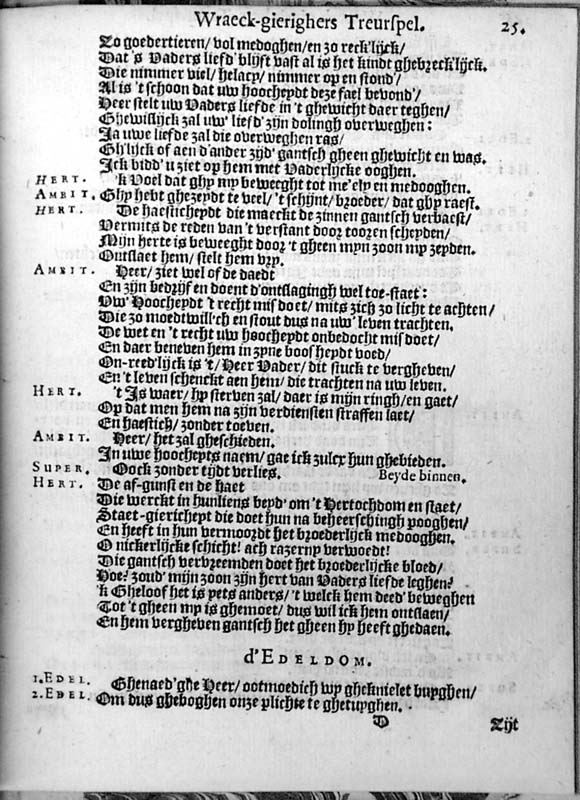 Wraeck-gierighers Treurspel. 25.
Zo goedertieren/ vol medoghen/ en zo reck'lijck/
Dat 's Vaders liefd' blijft vast al is het kindt ghebreck'lijck.
Die nimmer viel/ helacy/ nimmer op en stond'/
Al is 't schoon dat uw hoocheydt deze fael bevond'/
Heer stelt uw Vaders liefde in 't ghewicht daer teghen/
Ghewislijck zal uw' lief'd zijn dolingh overweghen:
Ja uwe liefde zal die overweghen ras/
Gh'lijck of aen d'ander zijd' gantsch gheen ghewicht en was.
Ick bidd' u ziet op hem met Vaderlijcke ooghen.
HERT. 'k Voel dat ghy my beweeght tot me'ely en medooghen.
AMBIT. Ghy hebt ghezeydt te veel/ 't schijnt/ broeder/ dat ghy raest.
HERT. De haesticheydt die maeckt de zinnen gantsch verbaest/
Vermits de reden van 't verstant door tooren scheyden/
Mijn herte is beweeght door 't gheen myn zoon my zeyden.
Ontslaet hem/ stelt hem vry.
AMBIT. Heer/ ziet wel of de daedt
En zijn bedrijf en doent d'ontslagingh wel toe-staet:
Uw' Hoocheydt 't recht mis doet/ mits zich zo licht te achten/
Die zo moedtwill'ch en stout dus na uw' leven trachten.
De wet en 't recht uw hoocheydt onbedocht mis doet/
En daer beneven hem in zyne boosheydt voed/
On-reed'lijck is 't/ Heer Vader/ dit stuck te vergheven/
En 't leven schenckt aen hem/ die trachten na uw leven.
HERT. 't Is waer/ hy sterven zal/ daer is mijn ringh/ en gaet/
Op dat men hem na zijn verdiensten straffen laet/
En haestich/ zonder toeven.
AMBIT. Heer/ het zal gheschieden.
In uwe hoocheyts naem/ gae ick zulcx hun ghebieden.
SUPER. Oock zonder tijdt verlies. Beyde binnen.
HERT. De af-gunst en de haet
Die werckt in hunliens beyd' om 't Hertochdom en staet/
Staet-giericheyt die doet hun na beheerschingh pooghen/
En heeft in hun vermoordt het broederlijck medooghen.
O nickerlijcke schicht! ach razerny verwoedt!
Die gantsch vervreemden doet het broederlijcke bloed/
Hoe? zoud' mijn zoon zijn hert van Vaders liefde leghen?
'k Gheloof het is yets anders/ 't welck hem deed' beweghen
Tot 't gheen my is ghemoet/ dus wil ick hem ontslaen/
En hem vergheven gantsch het gheen hy heeft ghedaen.
d'EDELDOM.
1.EDEL. Ghenaed'ghe Heer/ ootmoedich wy gheknielet buyghen/
2.EDEL. Om dus gheboghen onze plichte te ghetuyghen.
D Zijt